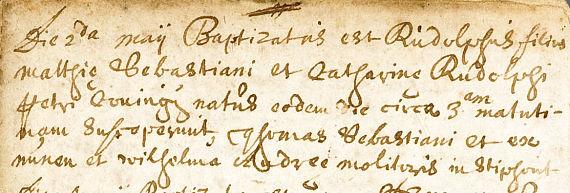 Die 2da maij Baptizatus est Rudolphus filius
Matthiæ Sebastiani et Catharine Rudolphi
Petri natus eodem die circa 3am matuti-
nam susceperunt, Thomas Sebastiani et ex
et Wilhelma Andree molitoris in